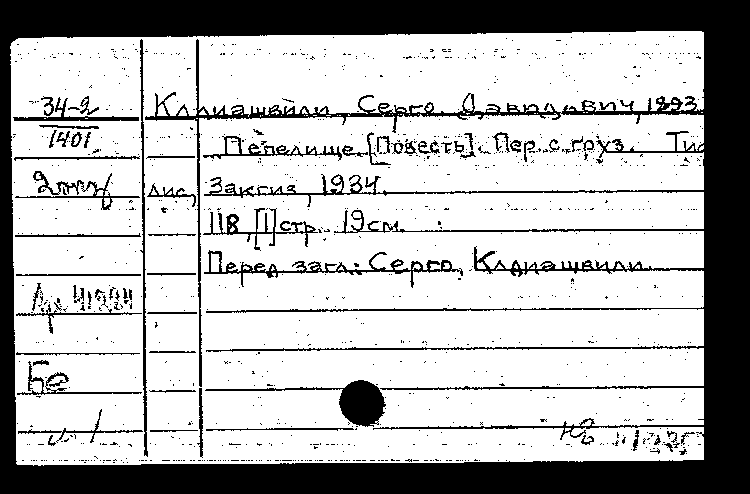 34-2
1401
Клдиашвили, Серго Давидович, 1893
Пепелище [Повесть]. Пер. с груз. Тиф
лис, Закгиз, 1934.
118, [1] стр. 19 см.
Перед загл.: Серго Клдиашвили.
41224
Бе